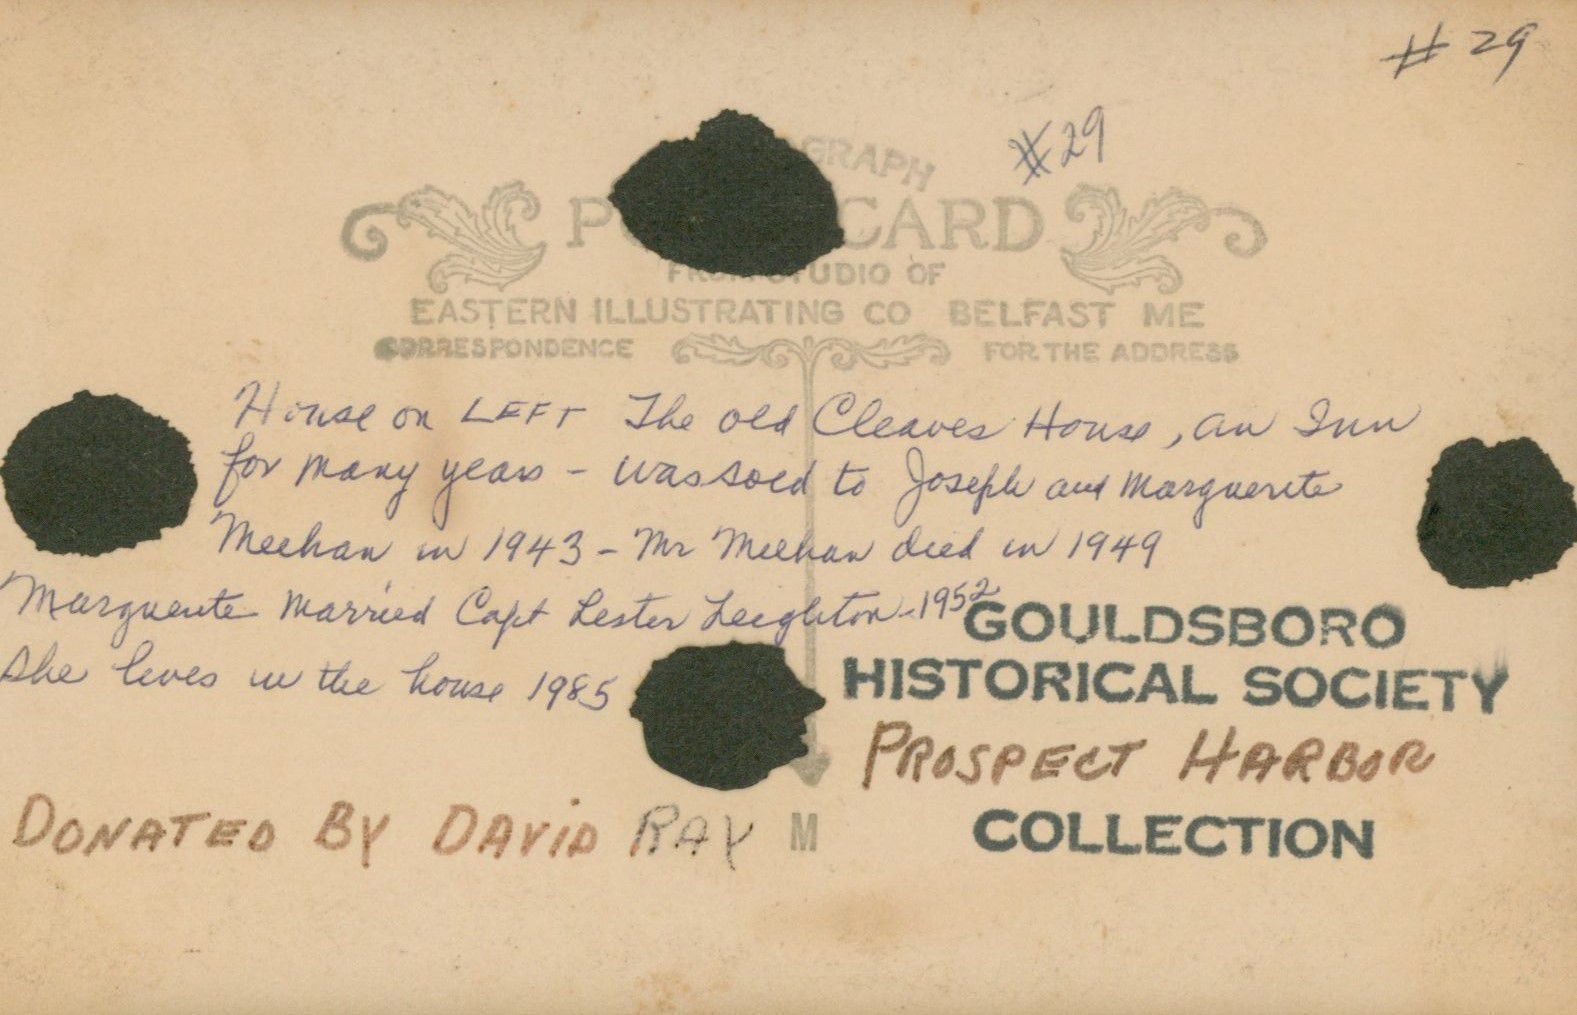 # 29
#29
GRAPH
P CARD
STUDIO OF
EASTERN ILLUSTRATING CO BELFAST ME
CORRESPONDENCE FOR THE ADDRESS
House on LEFT The old Cleaves House, an Inn
for many years - was sold to Joseph and Marguerite
Meehan in 1943 - Mr Meehan died in 1949
Marguerite Married Capt Lester Leighton - 1952
She lives in the house 1985
GOULDSBORO
HISTORICAL SOCIETY
PROSPECT HARBOR
COLLECTION
DONATED BY DAVID RAY M